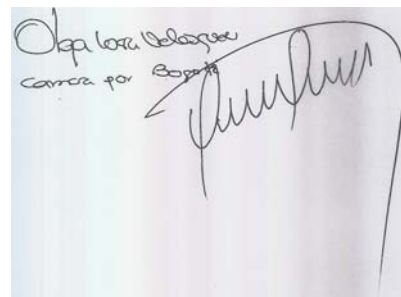 Olga Lucia Velasquez
Camara por Bogotá